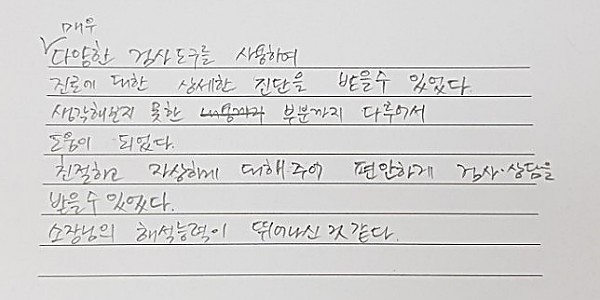 매우
다양한 검사도구를 사용하여
진로에 대한 상세한 진단을 받을 수 있었다.
생각해보지 못한 내용까지 부분까지 다루어서
도움이 되었다.
친절하고 자상하게 대해주어 편안하게 검사·상담을
받을 수 있었다.
소장님의 해석능력이 뛰어나신 것 같다.